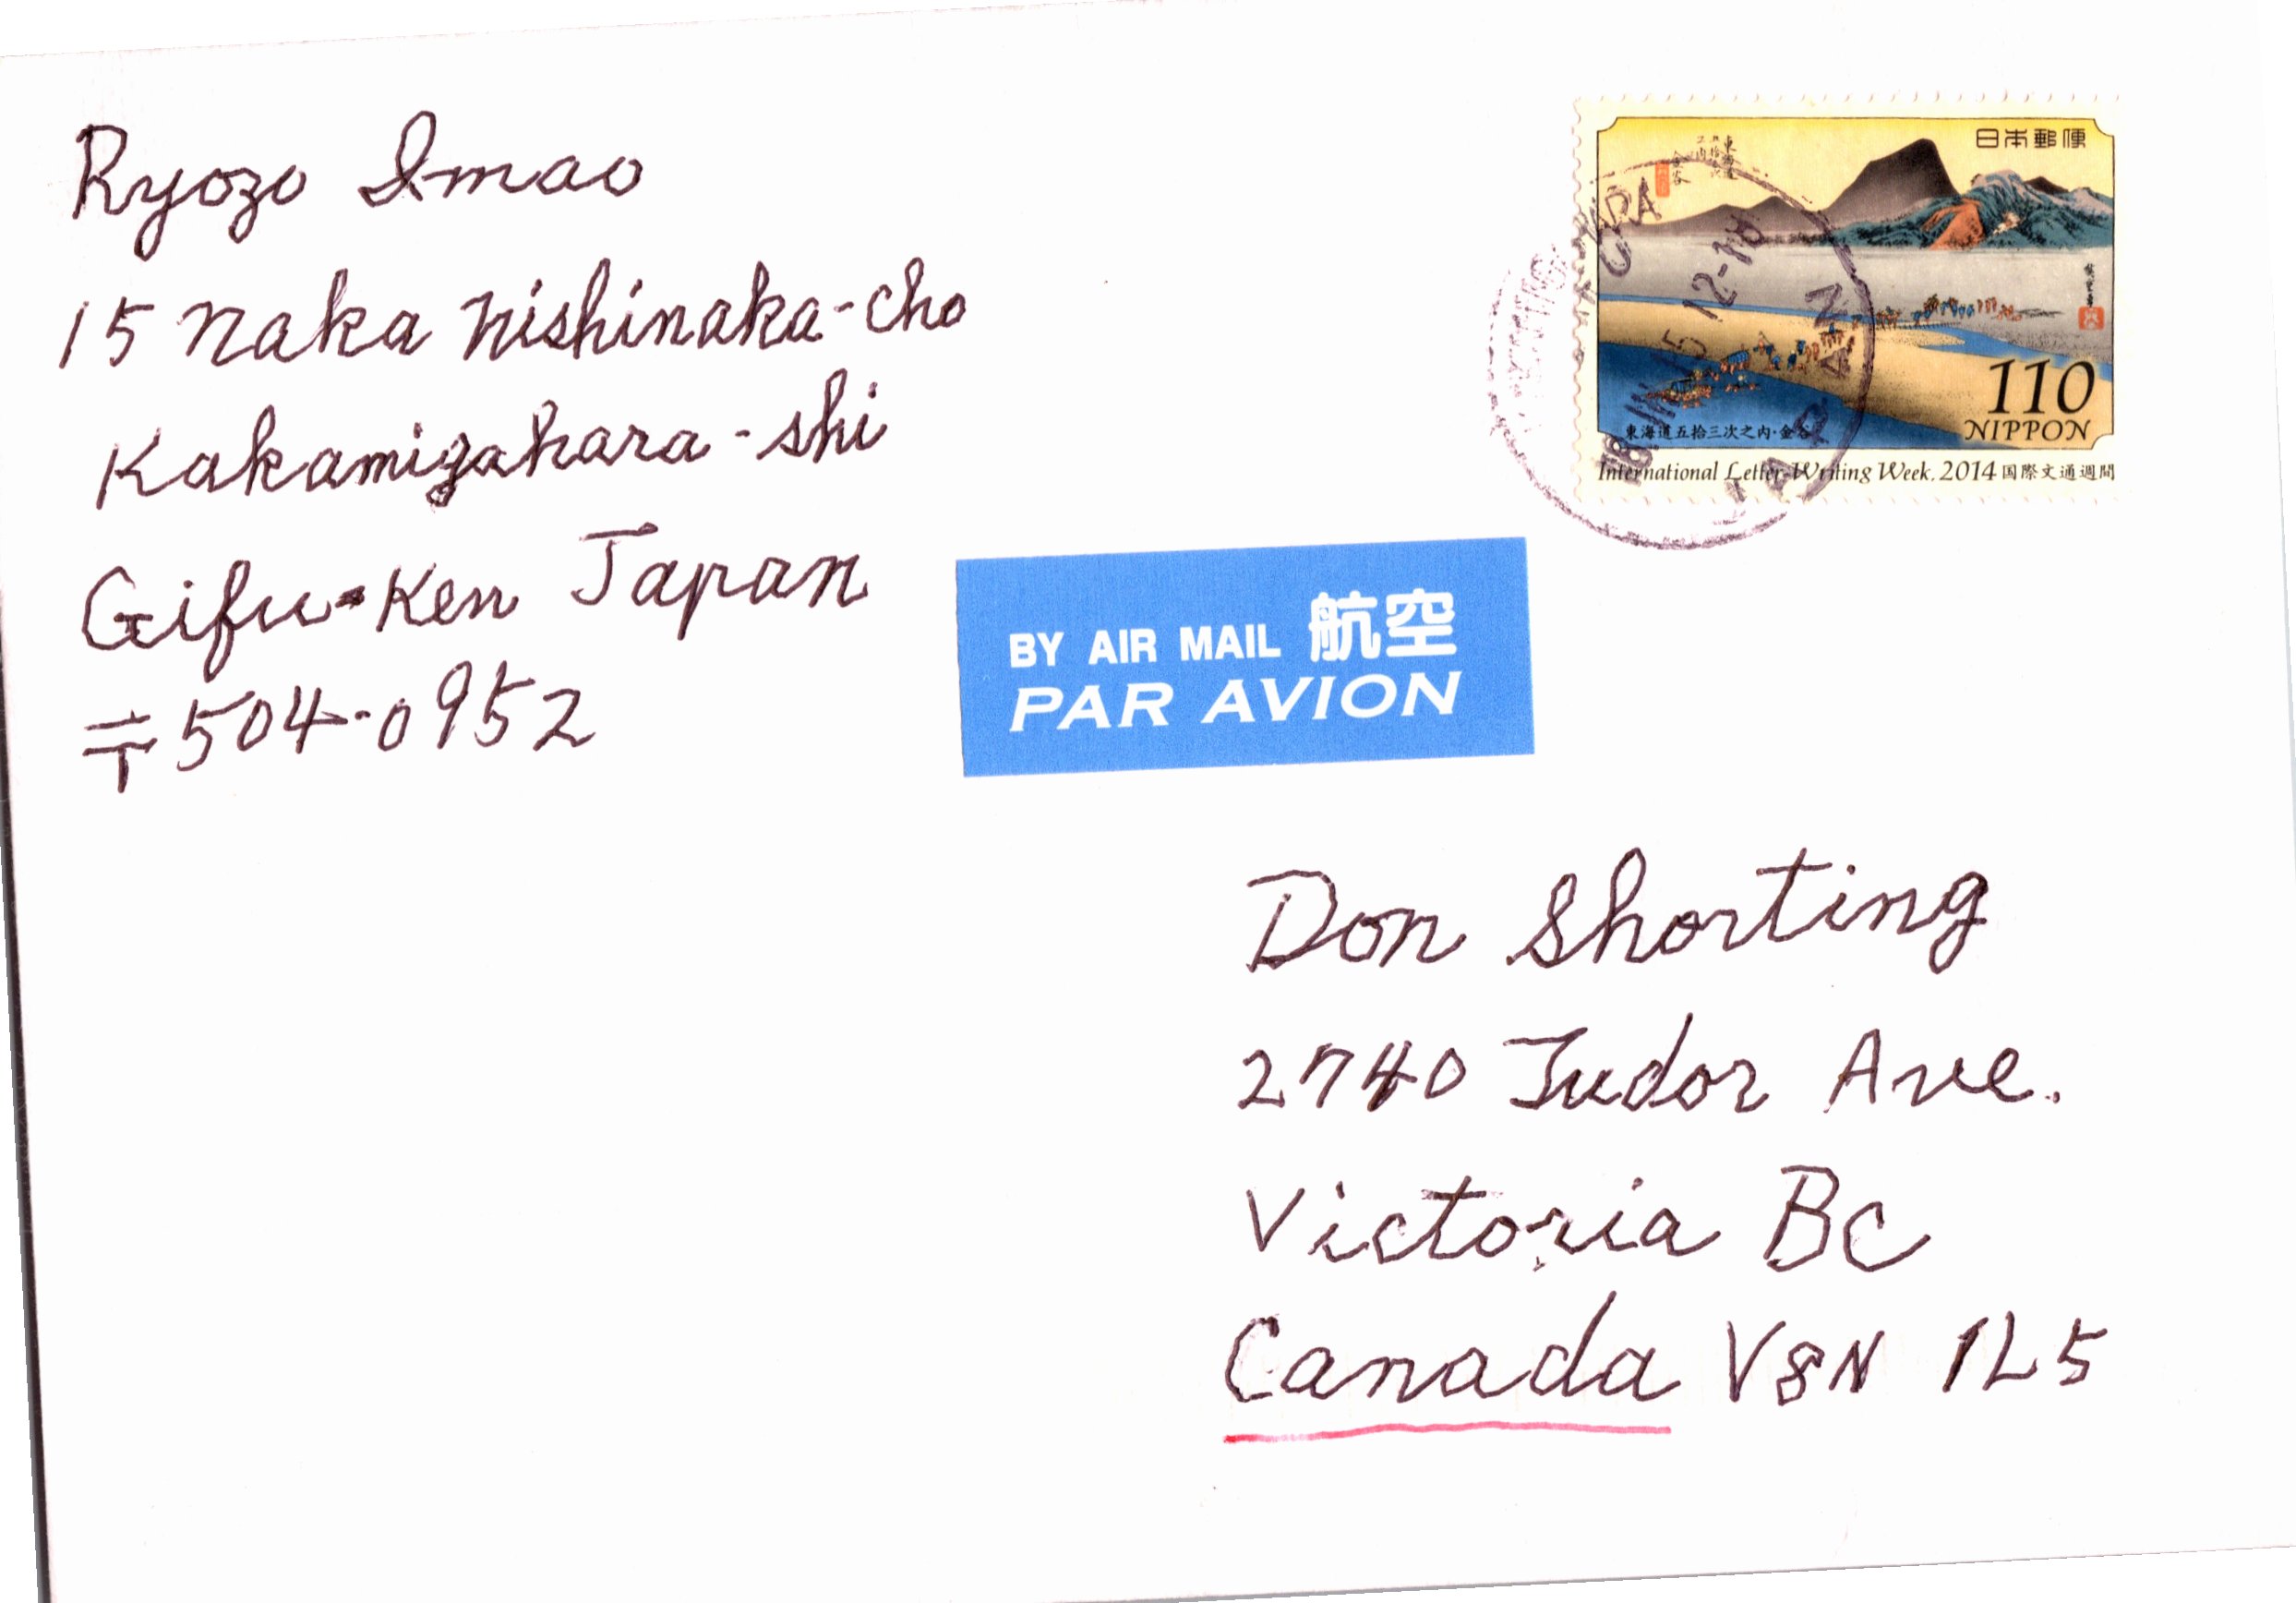 Ryozo Imao
15 Naka Nishinaka-cho
Kakamigahara-shi
Gifu-Ken Japan
〒504-0952
日本郵便
東海道五拾三次之内・金谷
110
NIPPON
International Letter-Writing Week, 2014 国際文通週間
12-18
JAPAN
BY AIR MAIL 航空
PAR AVION
Don Shorting
2740 Tudor Ave.
Victoria BC
Canada V8N 1L5